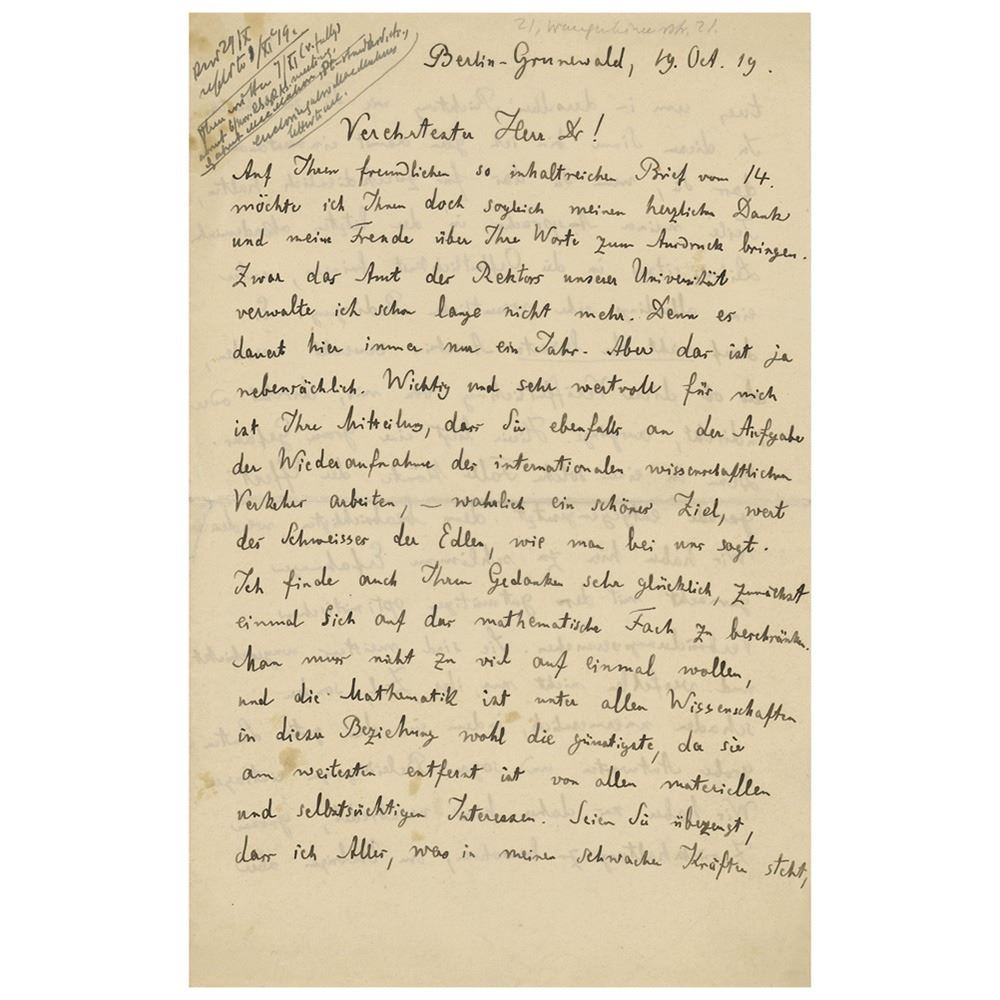 21, Wangenheimstr. 21.
Berlin-Grunewald, 19. Oct. 19.
repld to
then written 7/XI (v. fully)
about meeting
& about
enclosing also
literature.
Verehrtester Herr Dr!
Auf Ihren freundlichen so inhaltreichen Brief vom 14.
möchte ich Ihnen doch sogleich meinen herzlichen Dank
und meine Freude über Ihre Worte zum Ausdruck bringen.
Zwar das Amt des Rektors unserer Universität
verwalte ich schon lange nicht mehr. Denn es
dauert hier immer nur ein Jahr. Aber das ist ja
nebensächlich. Wichtig und sehr wertvoll für mich
ist Ihre Mitteilung, dass Sie ebenfalls an der Aufgabe
der Wiederaufnahme des internationalen wissenschaftlichen
Verkehrs arbeiten, – wahrlich ein schönes Ziel, wert
des Schweisses der Edlen, wie man bei uns sagt.
Ich finde auch Ihren Gedanken sehr glücklich, zunächst
einmal sich auf das mathematische Fach zu beschränken.
Man muss nicht zu viel auf einmal wollen,
und die Mathematik ist unter allen Wissenschaften
in dieser Beziehung wohl die günstigste, da sie
am weitesten entfernt ist von allen materiellen
und selbstsüchtigen Interessen. Seien Sie überzeugt,
dass ich Alles, was in meinen schwachen Kräften steht,